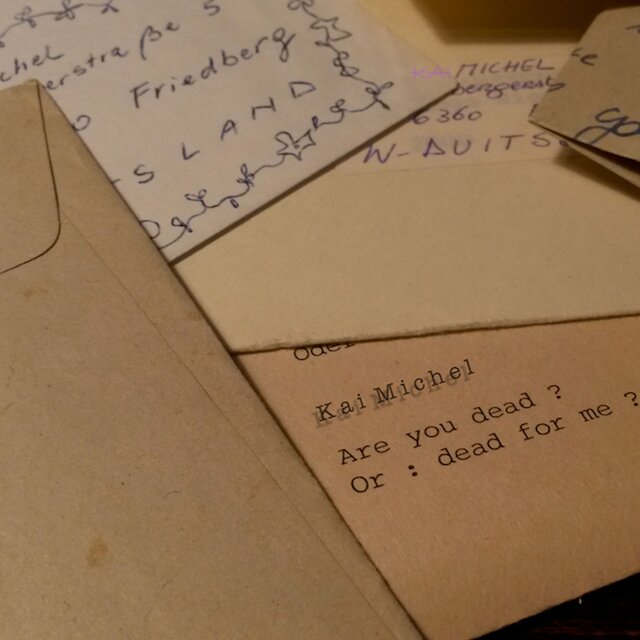 erstraße 5
Friedberg
S L A N D
KAI MICHEL
6360
W-DUITS
oder
Kai Michel
Are you dead ?
Or : dead for me ?